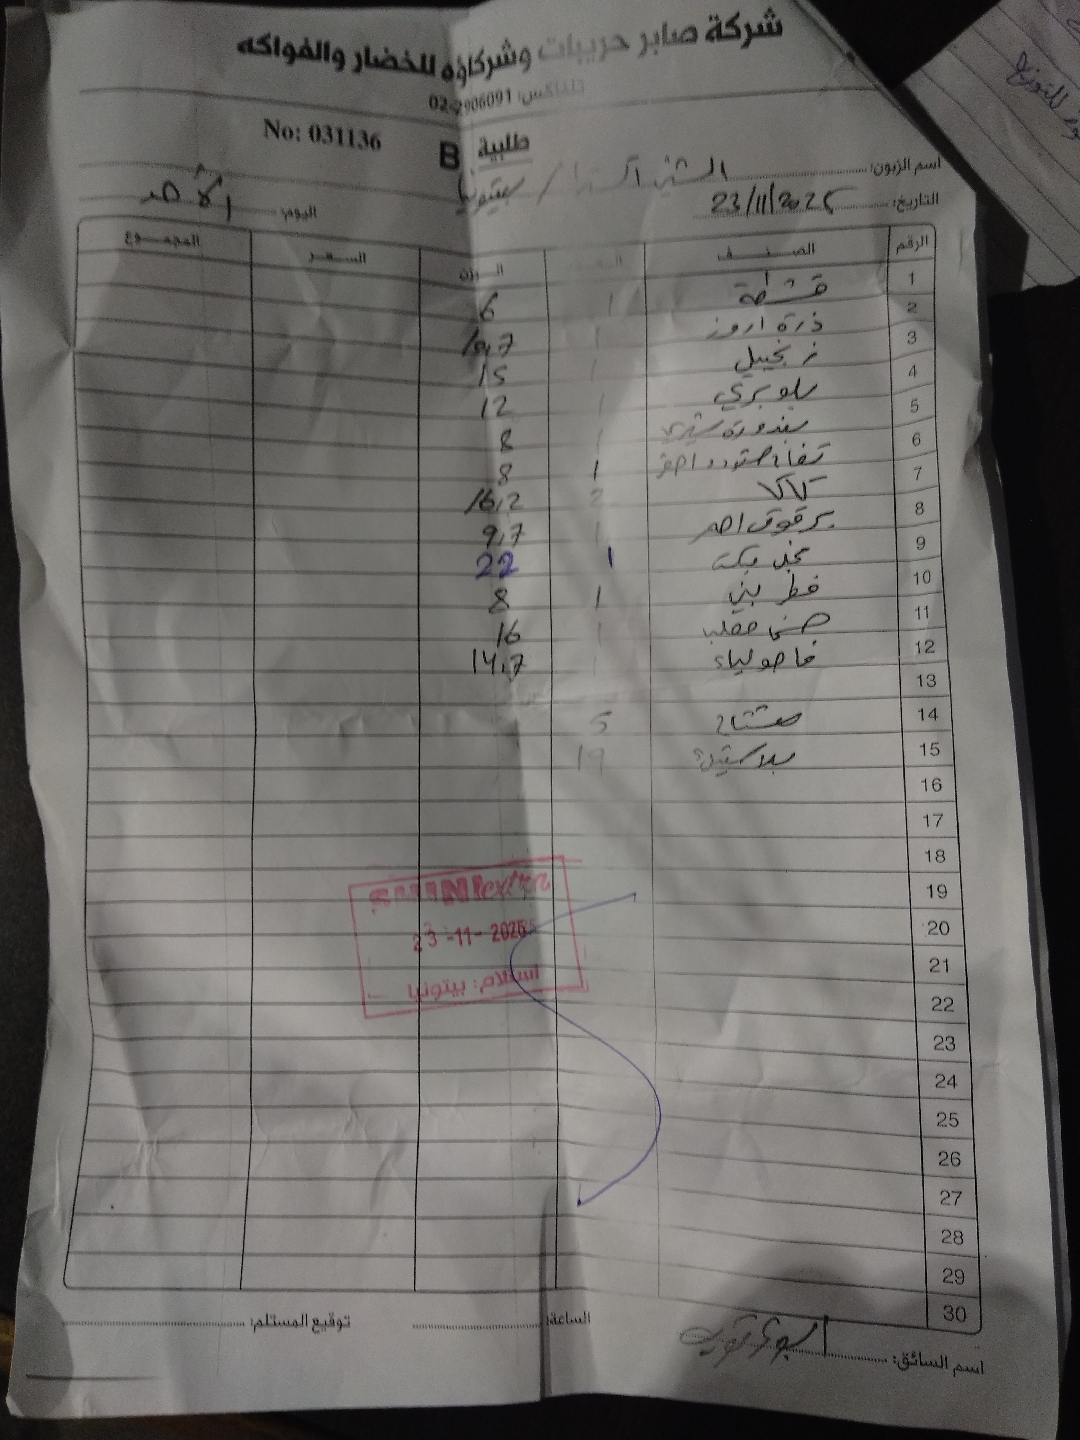 شركة صابر حريبات وشركاؤه للخضار والفواكه
تلفاكس: 02-2906091
طلبية B No: 031136
اسم الزبون: الشني اكسترا / بيتونيا
التاريخ: 23/11/2025 اليوم: الأحد
الرقم الصنف العدد الوزن السعر المجموع
1 قشطة 1 6
2 ذرة 1
3 زنجبيل 1 15
4 بلوبري 1 12
5 بندورة شيري 1 8
6 تفاح اصفر 1 8
7 كاكا 2 16,2
8 برقوق احمر 1 9,7
9 1 22
10 فطر بني 1 8
11 1 16
12 فاصولياء 1 14,7
13
14 مشتاح 5
15 بلاستيك 19
16
17
18
19
20
21
22
23
24
25
26
27
28
29
30
SHINI extra
23-11-2025
استلام: بيتونيا
اسم السائق:
الساعة:
توقيع المستلم:
للتوزيع